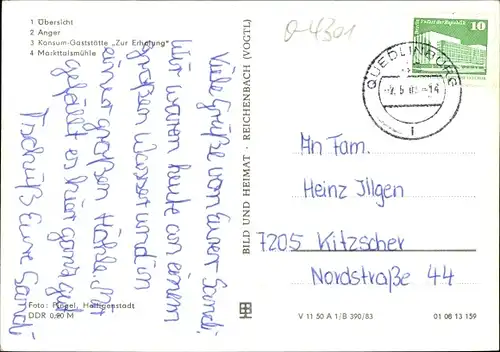 1 Übersicht
2 Anger
3 Konsum-Gaststätte „Zur Erholung"
4 Markttalsmühle
Viele Grüße von Eurer Sandi.
Wir waren heute an einem
großen Wasser und in
einer großen Höhle. Mir
gefällt es hier ganz gut
Tschüß Eure Sandi
Foto: Piegel, Heiligenstadt
DDR 0,90 M
BILD UND HEIMAT · REICHENBACH (VOGTL)
0-4301
10
QUEDLINBURG
-14
An Fam.
Heinz Jilgen
7205 Kitzscher
Nordstraße 44
V 11 50 A 1/B 390/83
01 06 13 159